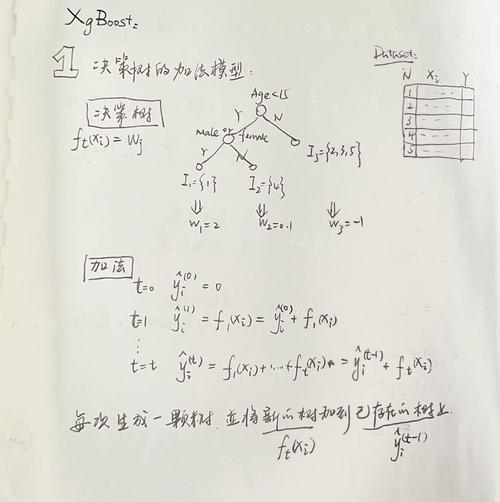 XgBoost:
1 决策树的加法模型:
Dataset:
N Xi Y
1
2
3
4
5
决策树
ft(xi) = Wj
Age<15
Y N
male or female
Y N
I1={1} I2={4} I3={2,3,5}
⇓ ⇓ ⇓
W1=2 W2=0.1 W3=-1
加法
t=0 ŷi(0) = 0
t=1 ŷi(1) = f1(xi) = ŷi(0) + f1(xi)
⋮
t=t ŷi(t) = f1(xi)+...+ft(xi) = ŷi(t-1) + ft(xi)
每次生成一颗树,并将新的树加到已存在的树上.
ft(xi) ŷi(t-1)